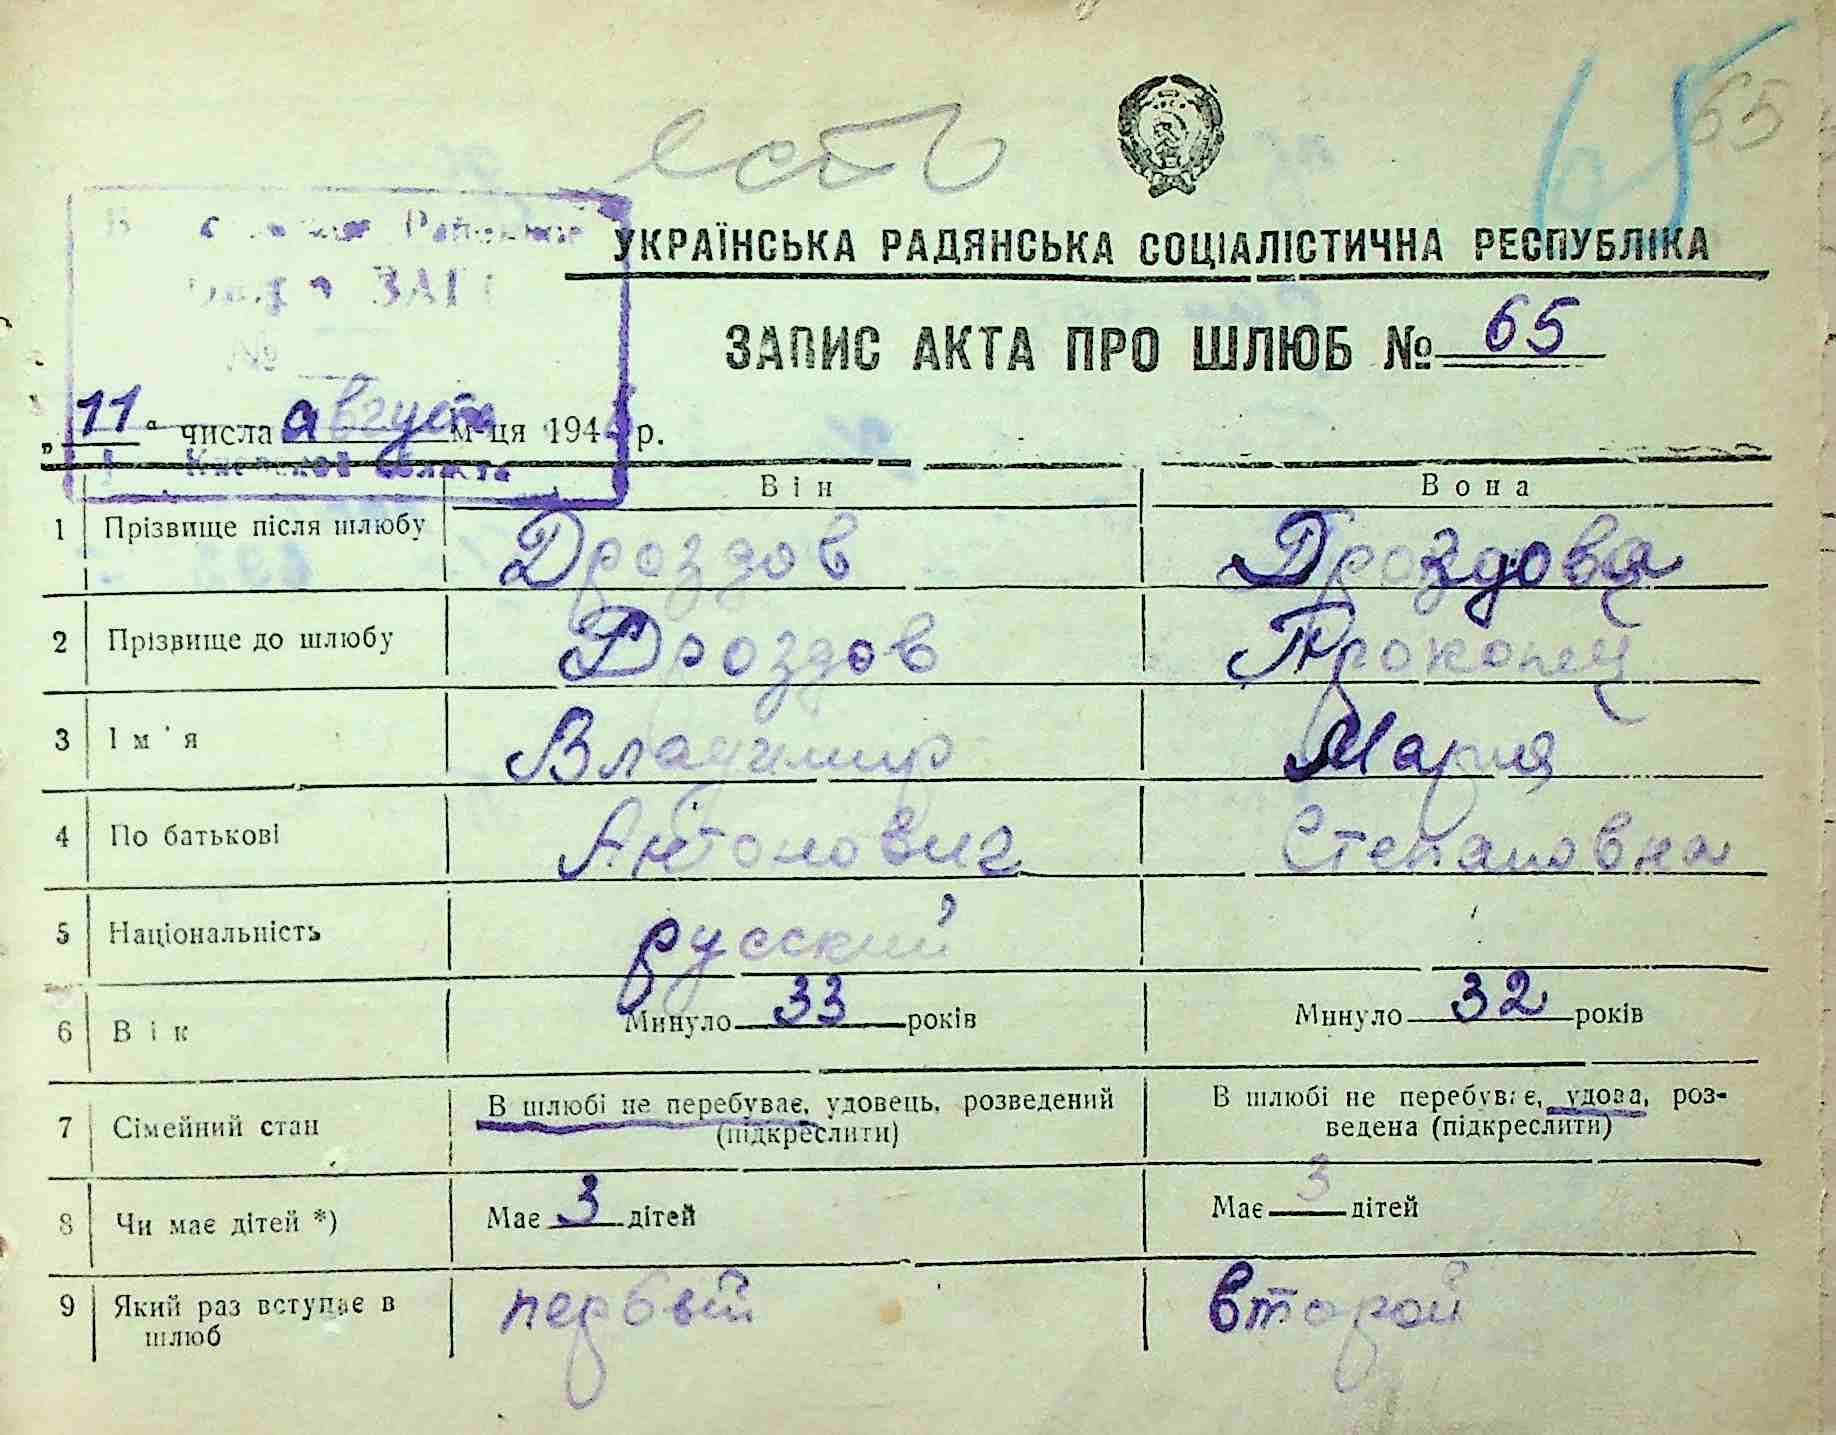 есть
65
65
УКРАЇНСЬКА РАДЯНСЬКА СОЦІАЛІСТИЧНА РЕСПУБЛІКА
ЗАГС
№
ЗАПИС АКТА ПРО ШЛЮБ № 65
„11“ числа августа м-ця 194 р.
Киевской области
Він Вона
1 Прізвище після шлюбу Дроздов Дроздова
2 Прізвище до шлюбу Дроздов Прокопец
3 Ім'я Владимир Мария
4 По батькові Антонович Степановна
5 Національність русский
6 Вік Минуло 33 років Минуло 32 років
7 Сімейний стан В шлюбі не перебуває, удовець, розведений (підкреслити) В шлюбі не перебуває, удова, роз-
ведена (підкреслити)
8 Чи має дітей *) Має 3 дітей Має 3 дітей
9 Який раз вступає в шлюб первый второй